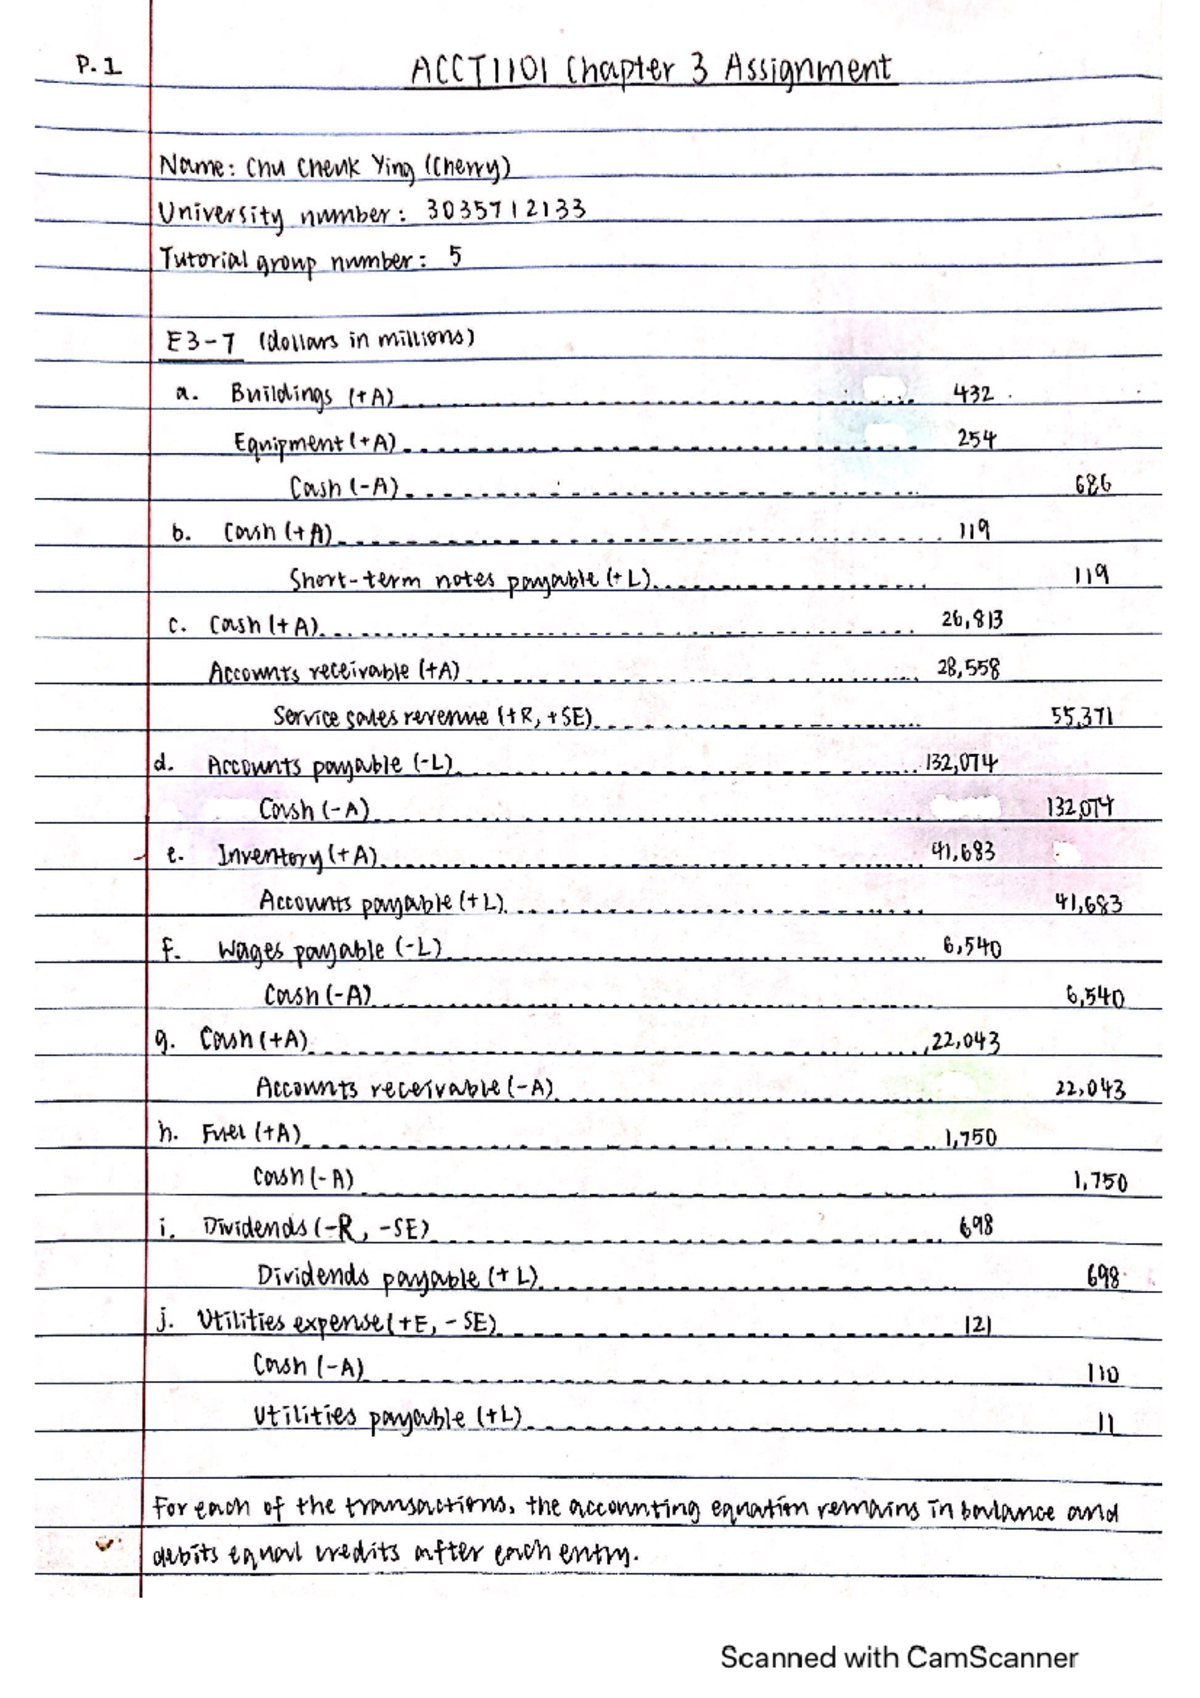 P.1
ACCT1101 Chapter 3 Assignment
Name: Chu Cheuk Ying (Cherry)
University number: 3035712133
Tutorial group number: 5
E3-7 (dollars in millions)
a. Buildings (+A) 432
Equipment (+A) 254
Cash (-A) 686
b. Cash (+A) 119
Short-term notes payable (+L) 119
c. Cash (+A) 26,813
Accounts receivable (+A) 28,558
Service sales revenue (+R, +SE) 55,371
d. Accounts payable (-L) 132,074
Cash (-A) 132,074
e. Inventory (+A) 41,683
Accounts payable (+L) 41,683
f. Wages payable (-L) 6,540
Cash (-A) 6,540
g. Cash (+A) 22,043
Accounts receivable (-A) 22,043
h. Fuel (+A) 1,750
Cash (-A) 1,750
i. Dividends (-R, -SE) 698
Dividends payable (+L) 698
j. Utilities expense (+E, -SE) 121
Cash (-A) 110
Utilities payable (+L) 11
For each of the transactions, the accounting equation remains in balance and
debits equal credits after each entry.
Scanned with CamScanner